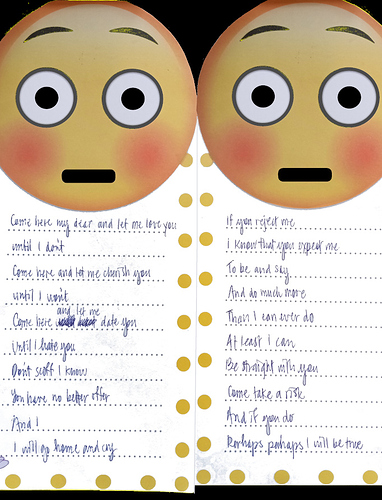 Come here my dear and let me love you
until I don't
Come here and let me cherish you
until I won't
and let me
Come here date you
Until I hate you
Don't scoff I know
You have no better offer
And I
I will go home and cry
If you reject me
I know that you expect me
To be and say
And do much more
Than I can ever do
At least I can
Be straight with you
Come take a risk
And if you do
Perhaps perhaps I will be true